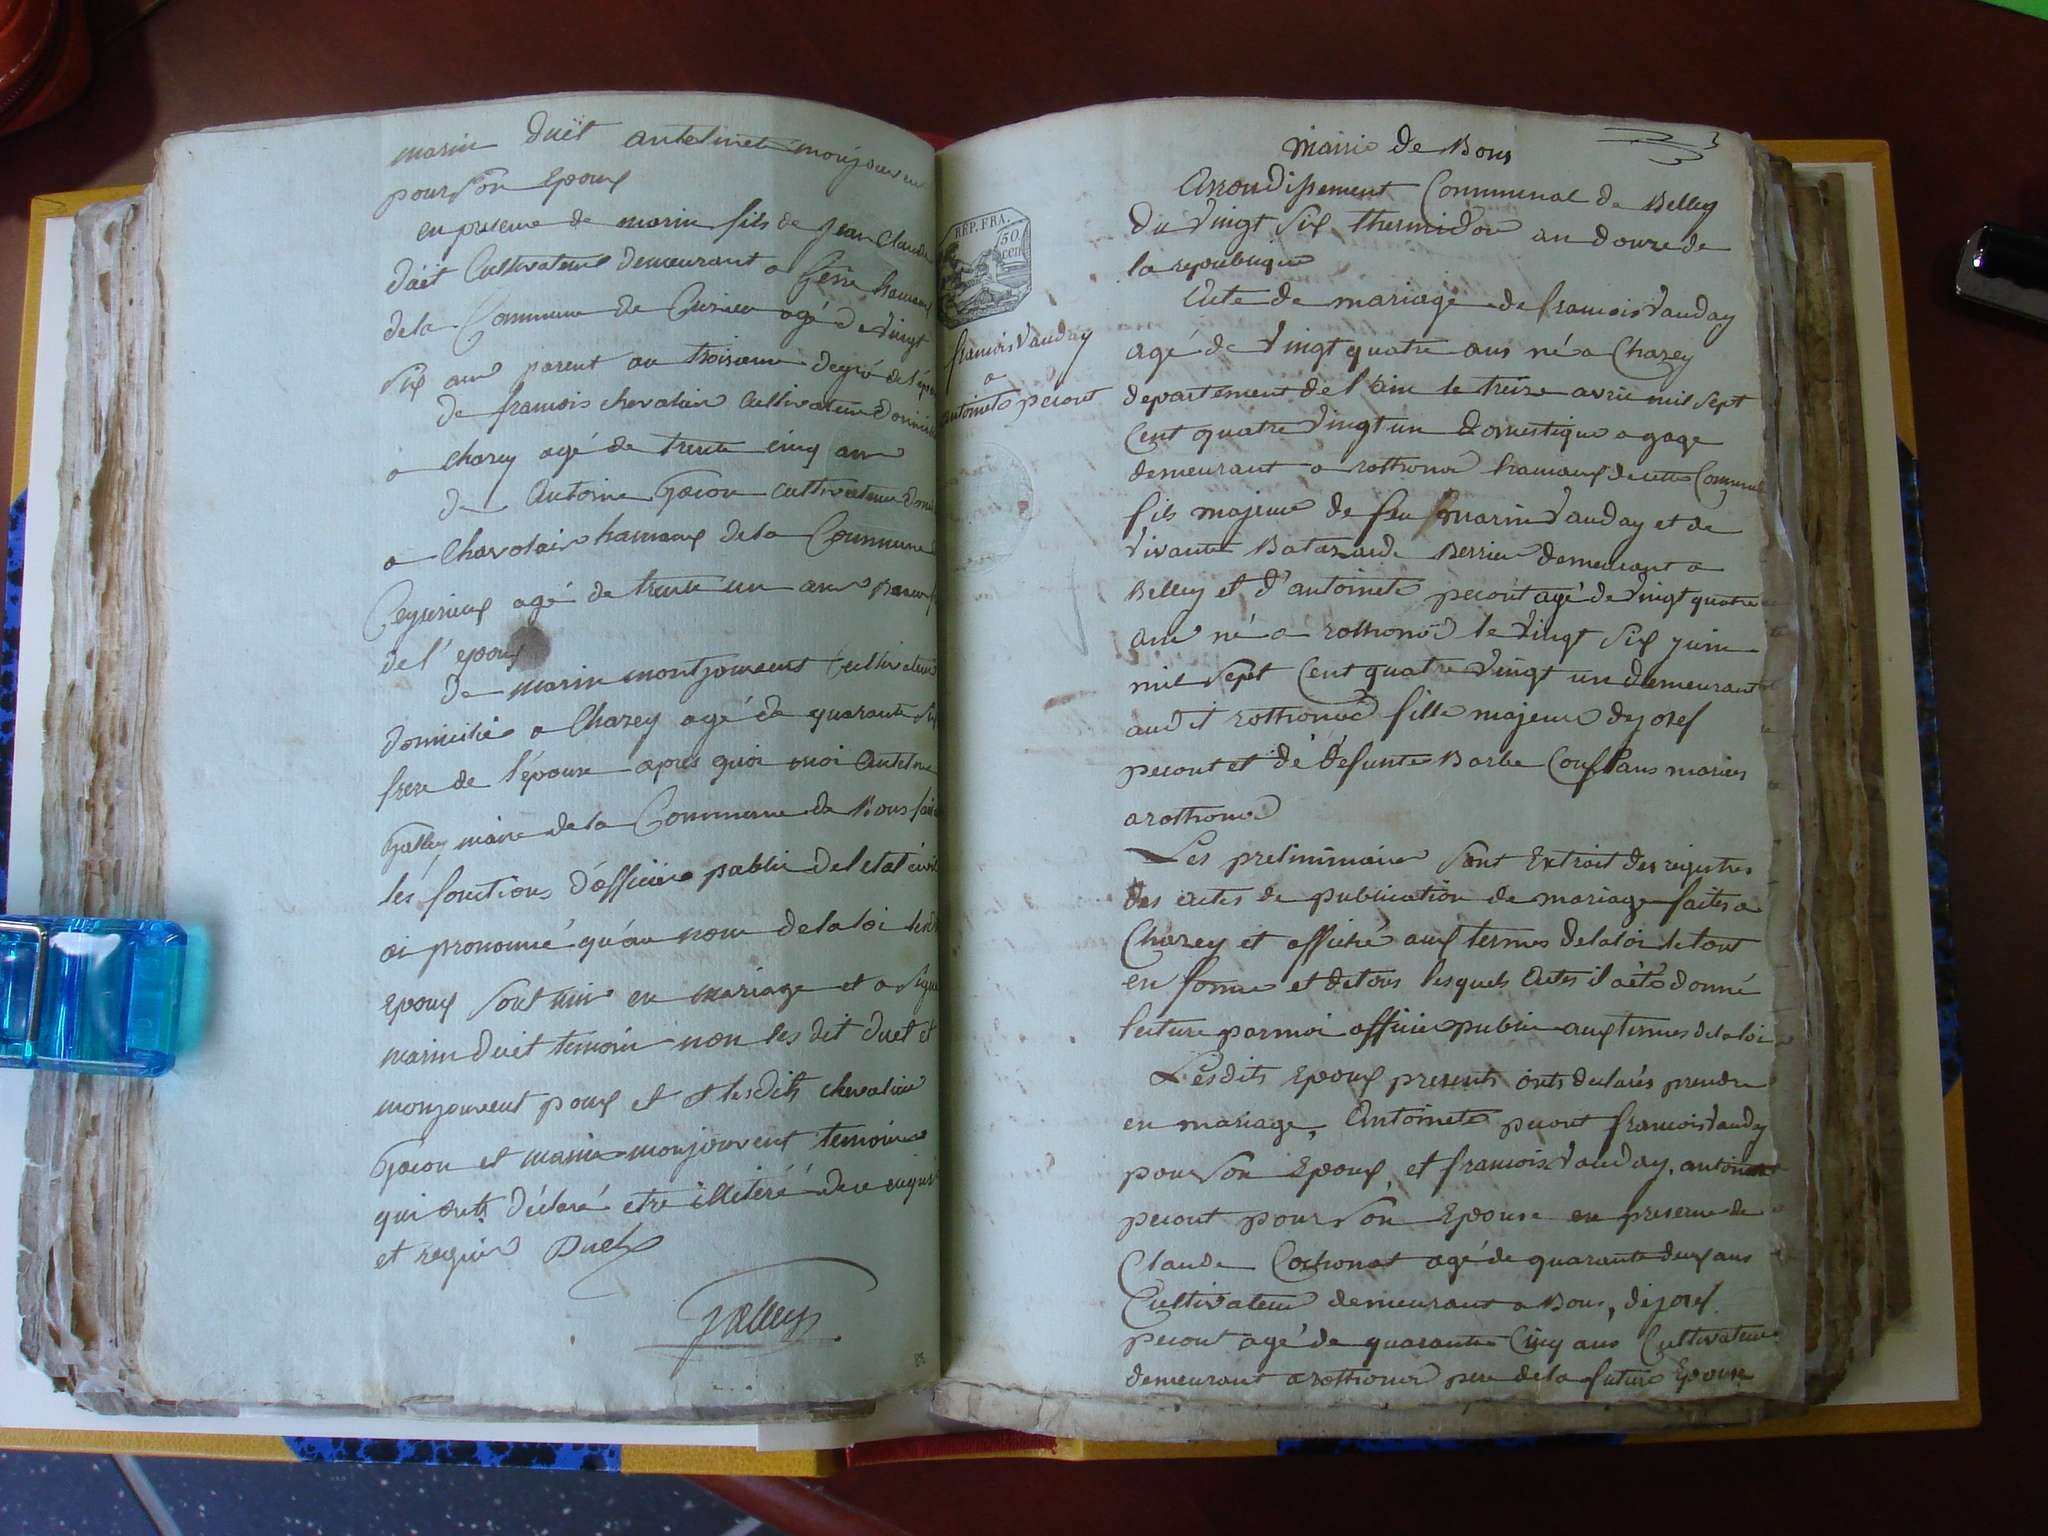 marin duët antelmete monjouvent
pour son Epoux
en presence de marin fils de Jean Claude
duët Cultivateur demeurant a hameau
de la Commune de agé de vingt
six ans parent au troisieme degré de l'époux
de francois chevalier Cultivateur domicilié
a Chazey agé de trente cinq ans
de Antoine Gacon cultivateur
a Charolais hameaux de la Commune
Ceyzerieux agé de trente un ans
de l'epoux
de marin montjouvent Cultivateur
domicilié a Chazey agé de quarante six
frere de l'épouse apres quoi moi Antelme
Galley maire de la Commune de Bons fais
les fonctions d'officier public de l'etat civil
ai prononcé qu'au nom de la loi lesdits
Epoux sont unis en mariage et a signé
marin duët temoin non les dit duet et
monjouvent poux et lesdits chevalier
Gacon et marin monjouvent temoins
qui onts déclaré etre illiteré de ce enquis
et requis Duet
Galley
REP. FRA.
50
cen
francois Vauday
a
antoinete pecout
Mairie de Bons
Arrondissement Communal de Belley
du vingt six thermidor an douze de
la republique
Acte de mariage de francois Vauday
agé de vingt quatre ans né a Chazey
departement de l'ain le treize avril mil sept
Cent quatre vingt un domestique a gage
demeurant a rothonod hameaux de cette Commune
fils majeur de feu marin Vauday et de
vivante Batazarde Berrier demeurant a
Belley et d'antoinete pecout agé de vingt quatre
ans né a rothonod le vingt six juin
mil sept Cent quatre vingt un demeurant
audit rothonod fille majeure de josef
pecout et de defunte Barbe Coussans mariés
a rothonod
Les preliminaires sont Extrait des registres
des actes de publication de mariage faites a
Chazey et affiché aux termes de la loi le tout
en forme et de tous lesquels Actes il a èté donné
lecture par moi officier public aux termes de la loi
Lesdits Epoux presents onts declarés prendre
en mariage, Antoinete pecout francois Vauday
pour son Epoux, et francois Vauday, antoinete
pecout pour son Epouse en presence de
Claude Cochonat agé de quarante deux ans
Cultivateur demeurant a Bons, de josef
pecout agé de quarante Cinq ans Cultivateur
demeurant a rothonod pere de la future Epouse